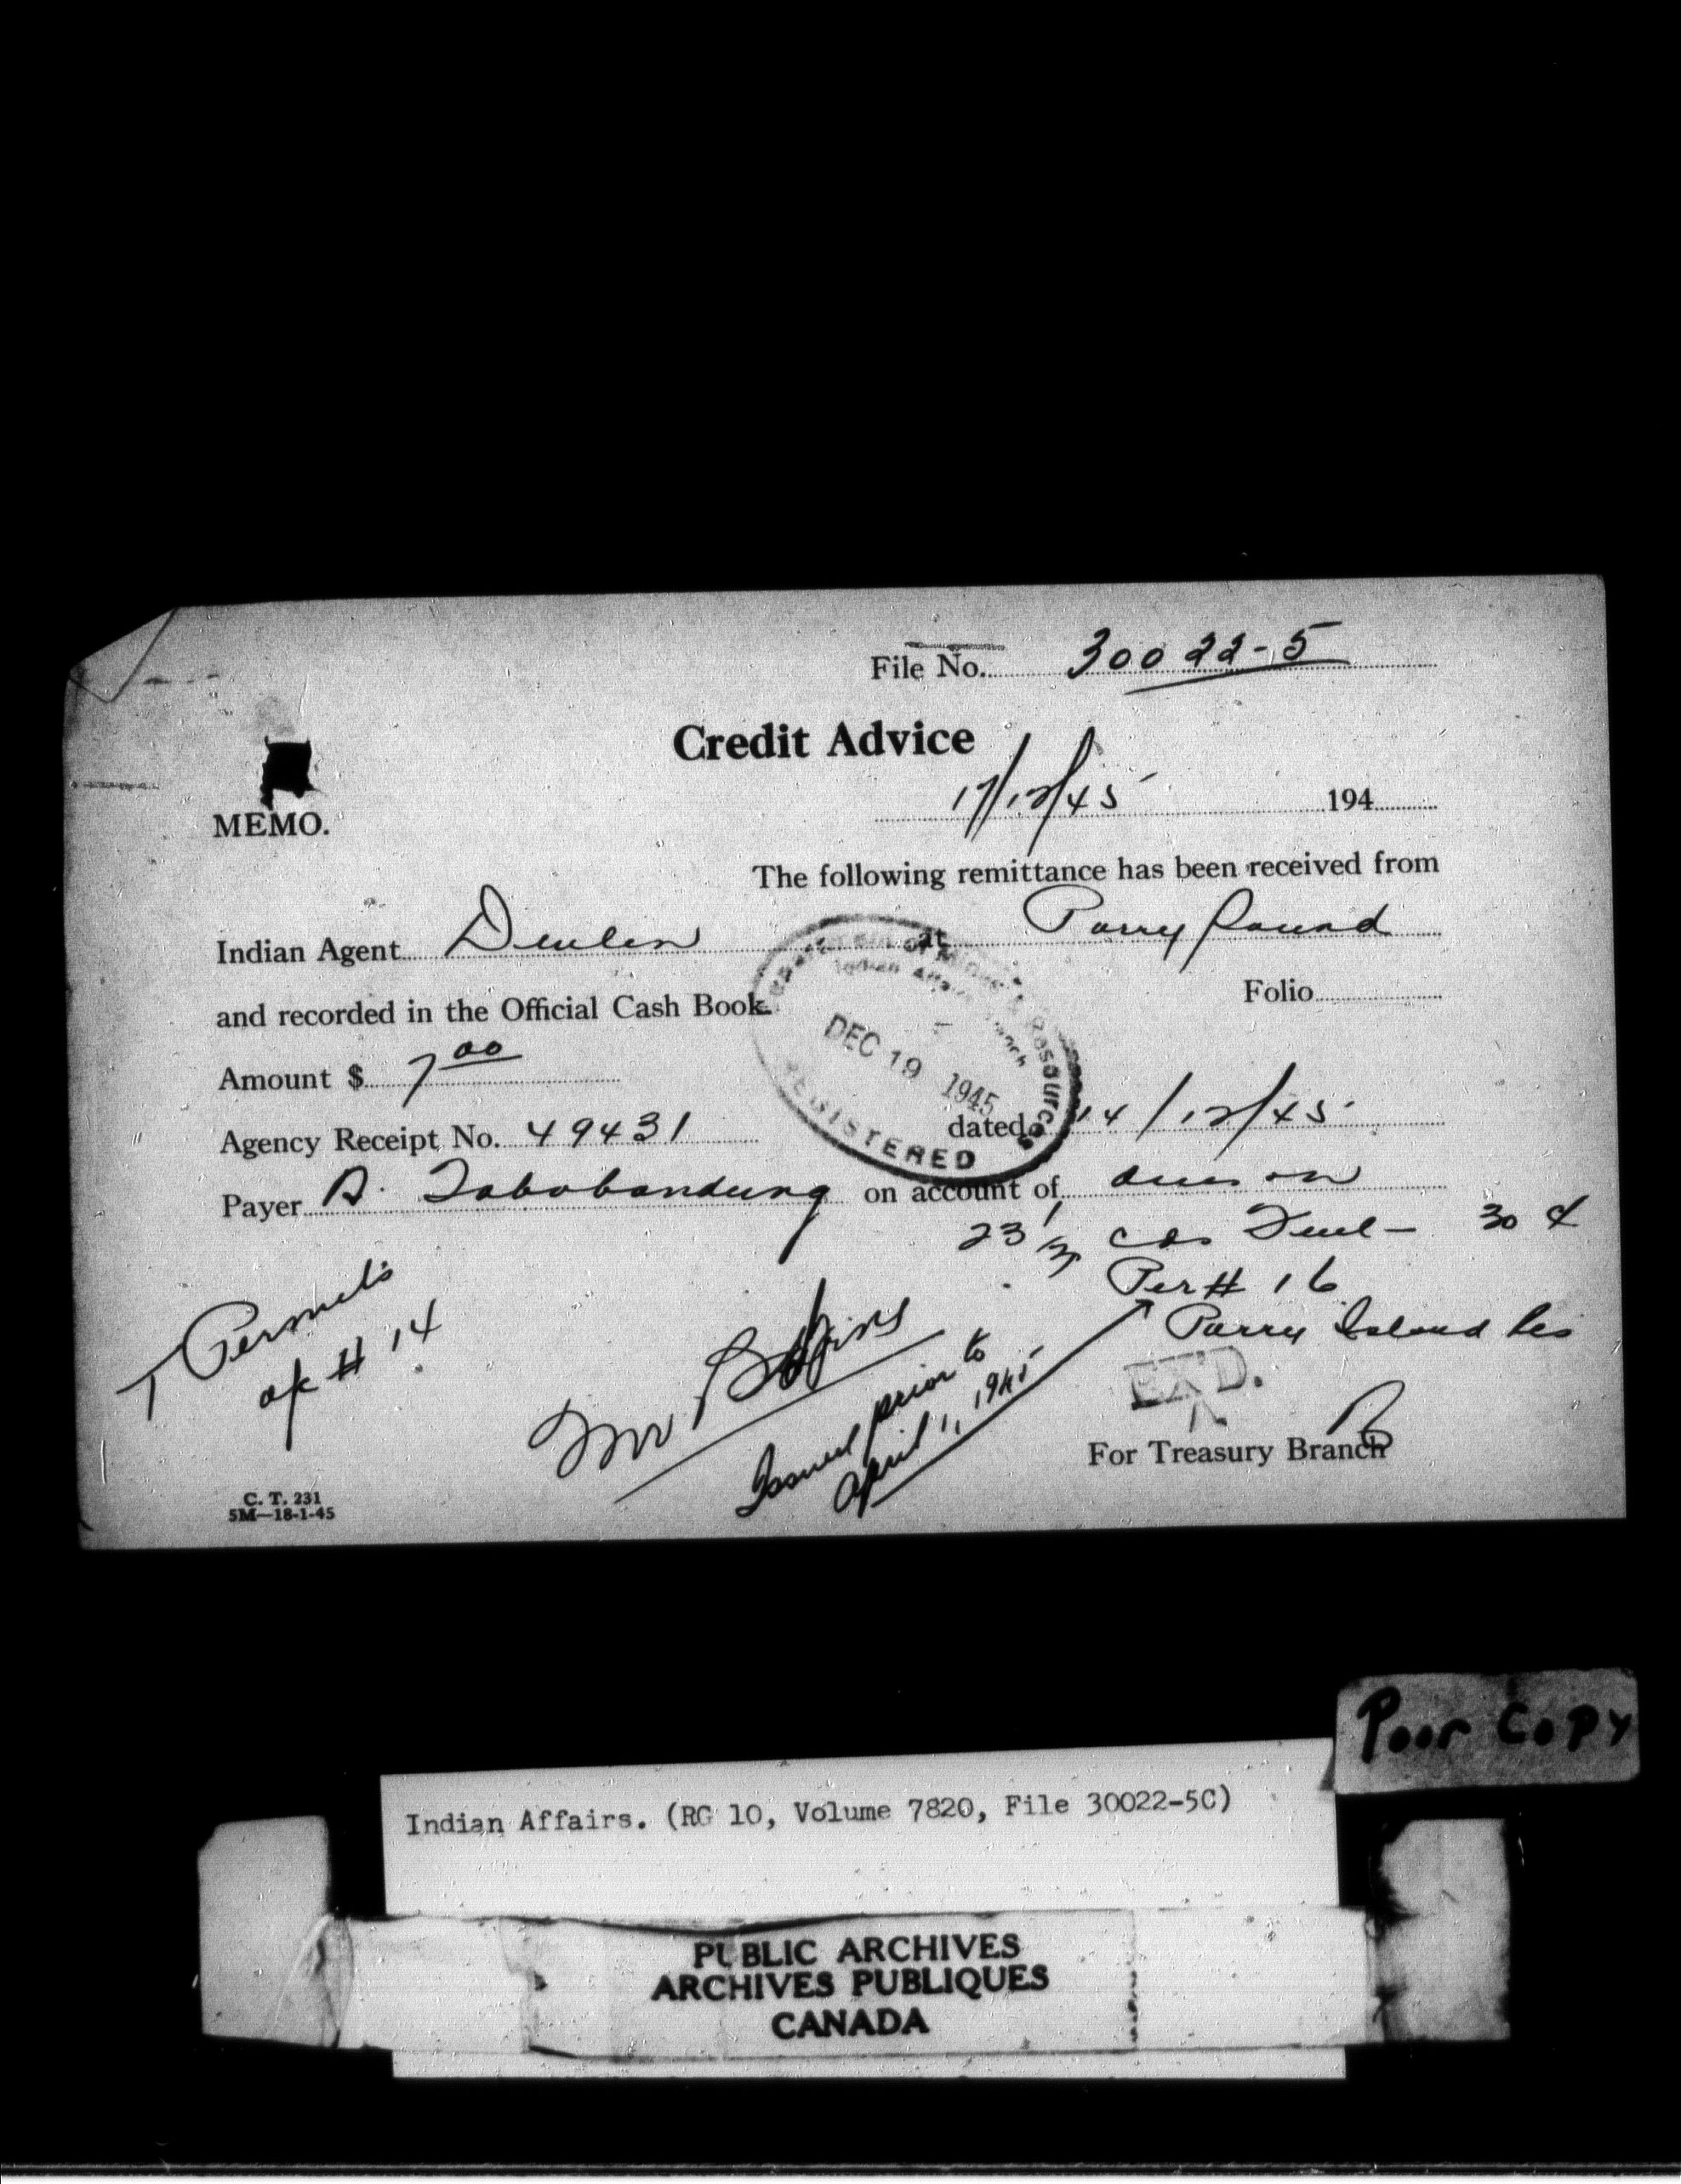 File No. 30022-5
Credit Advice
17/12/45 194
MEMO.
The following remittance has been received from
Indian Agent at Parry Sound
and recorded in the Official Cash Book. Folio
Amount $ 7 00
Agency Receipt No. 49431 dated 14/12/45
Payer A. Tabobandung on account of dues on
23 1/3 cds Fuel - 30 ¢
Per # 16
Parry Island Res
7 Permits
a/c # 14
Mr
Issued prior to
April 1, 1945
EX'D.
For Treasury Branch
C. T. 231
5M—18-1-45
Department of Mines & Resources
Indian Affairs Branch
DEC 19 1945
REGISTERED
Poor Copy
Indian Affairs. (RG 10, Volume 7820, File 30022-5C)
PUBLIC ARCHIVES
ARCHIVES PUBLIQUES
CANADA